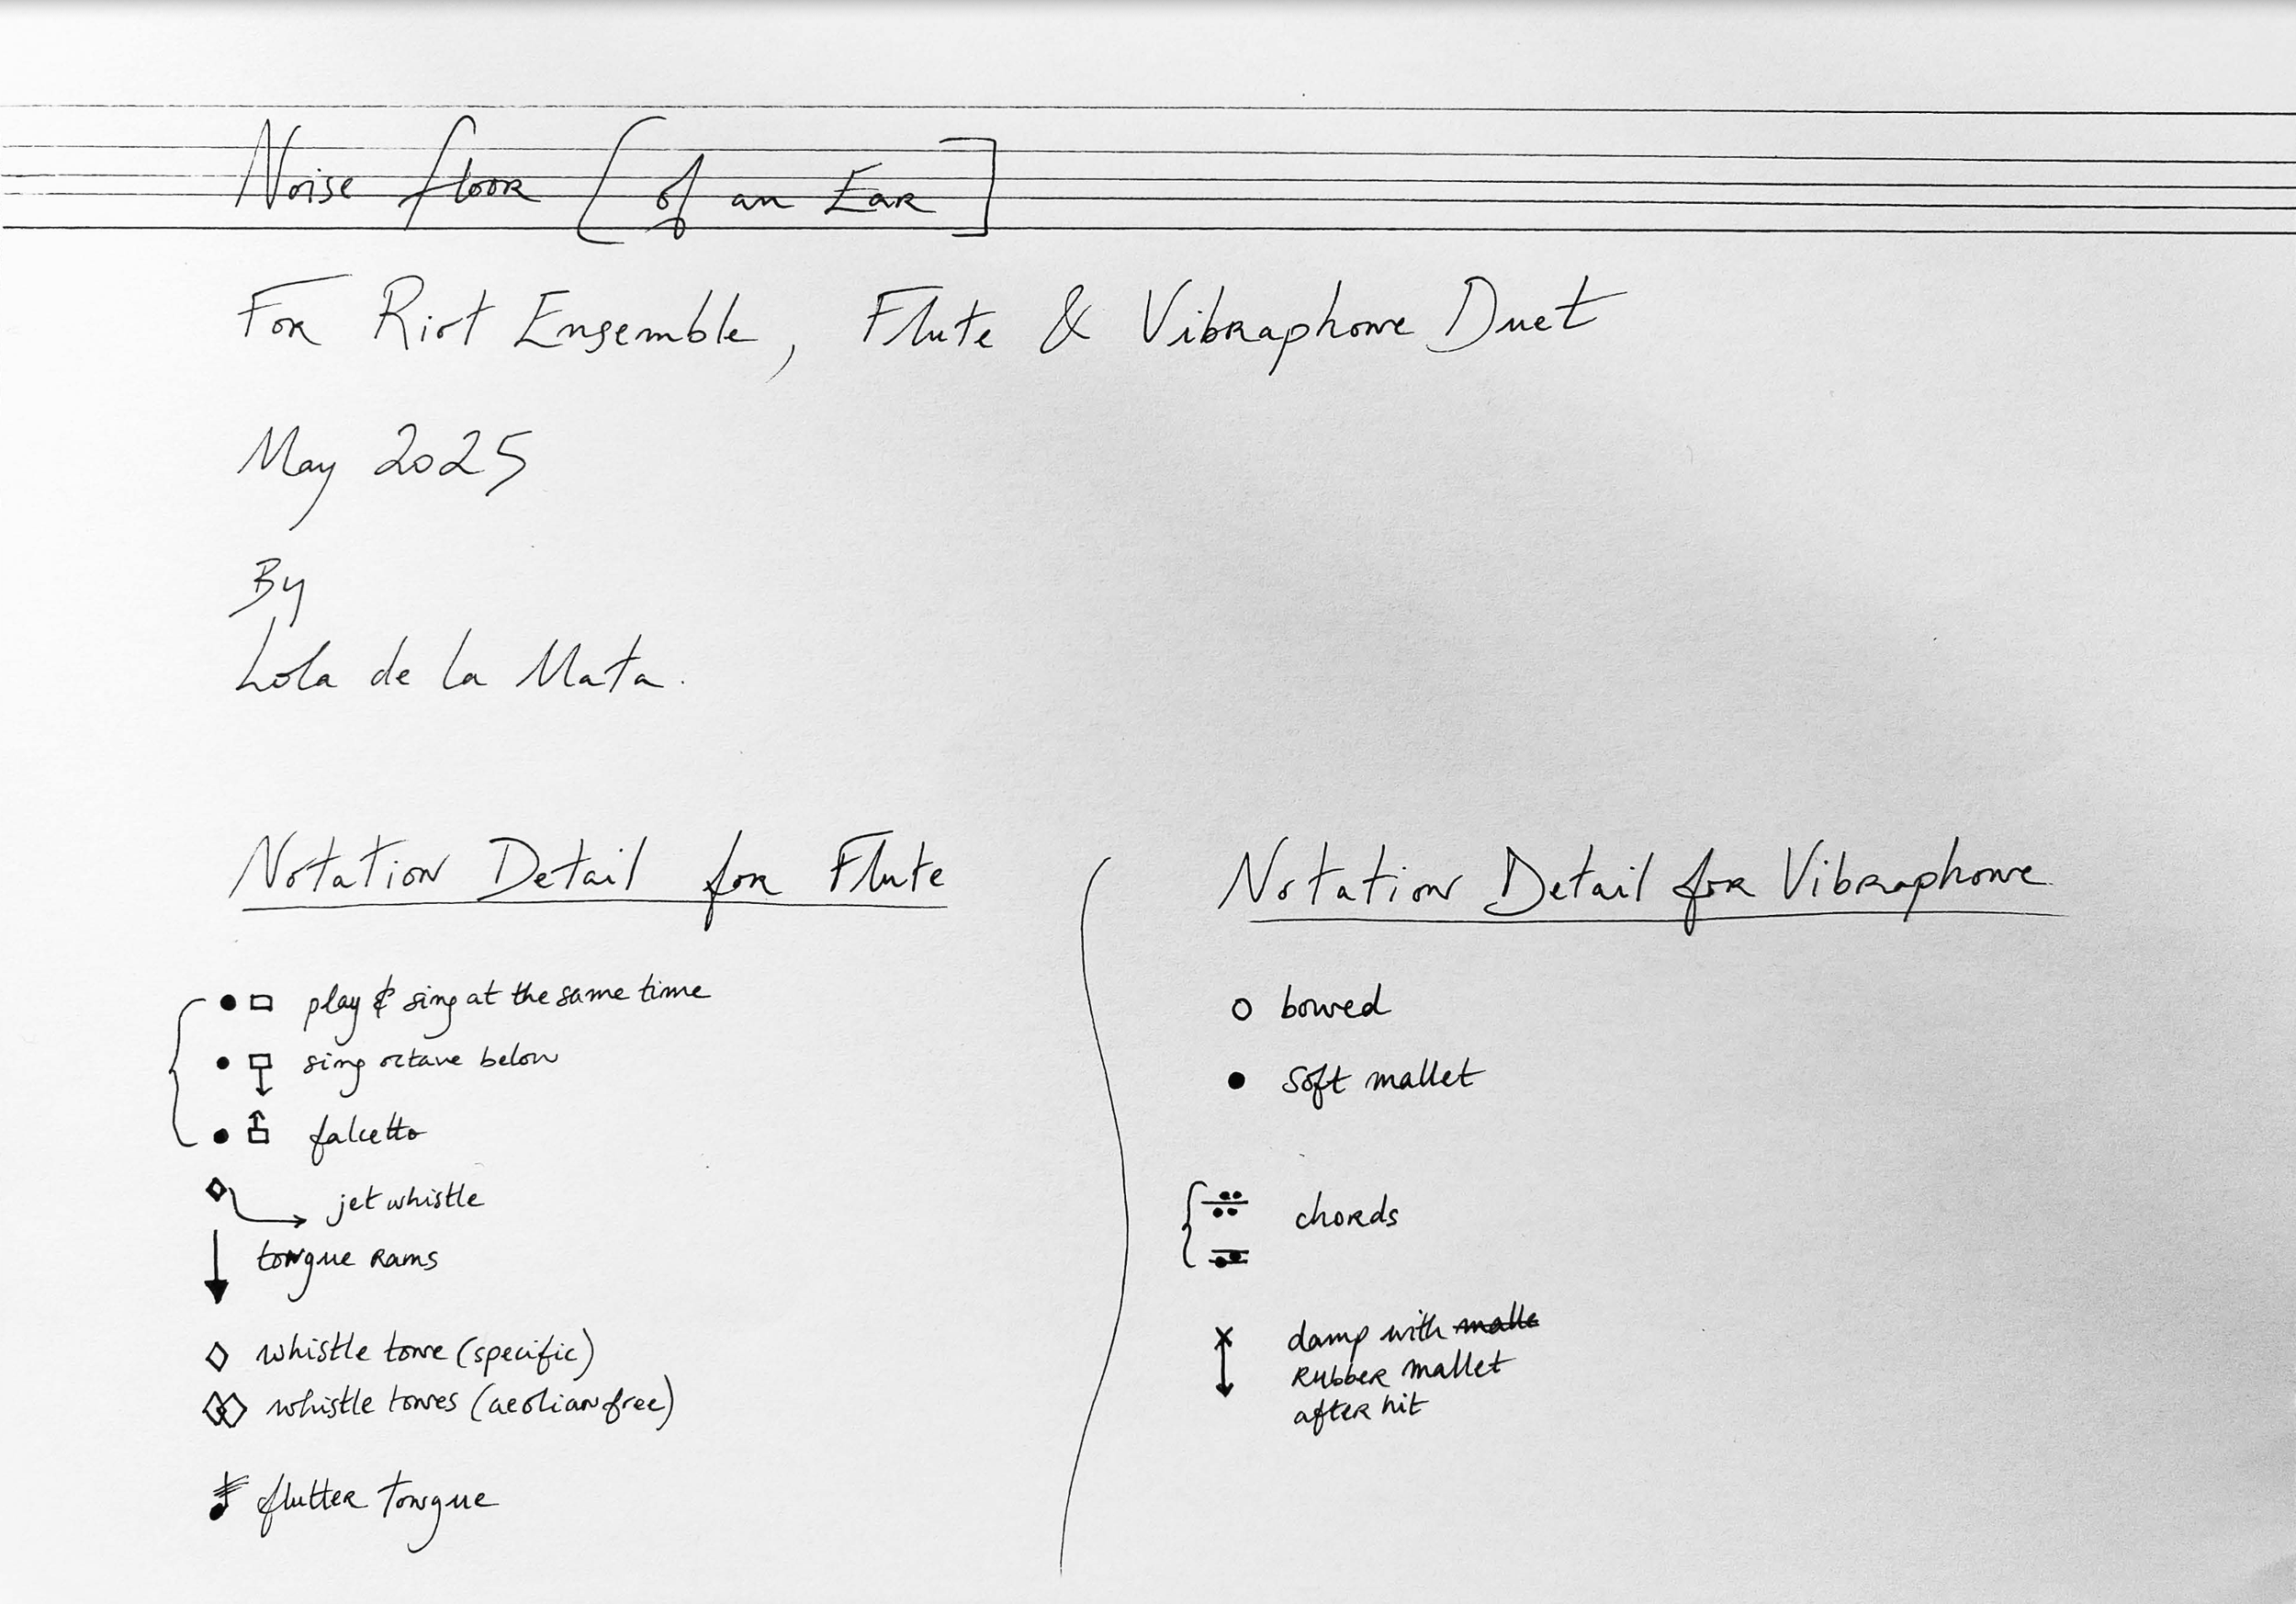 Noise floor [of an Ear]
For Riot Ensemble, Flute & Vibraphone Duet
May 2025
By
Lola de la Mata.
Notation Detail for Flute
play & sing at the same time
sing octave below
falcetto
jet whistle
tongue rams
whistle tone (specific)
whistle tones (aeolian free)
flutter tongue
Notation Detail for Vibraphone
bowed
soft mallet
chords
damp with malle
Rubber mallet
after hit